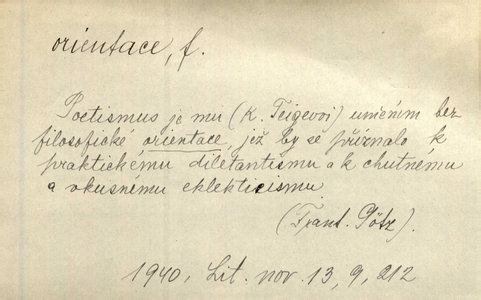 orientace, f.
Poetismus je mu (K. Teigovi) uměním bez
filosofické orientace, jež by se přiznalo k
praktickému diletantismu a k chutnému
a vkusnému eklekticismu
(Frant. Götz).
1940, Lit. nov. 13, 9, 212